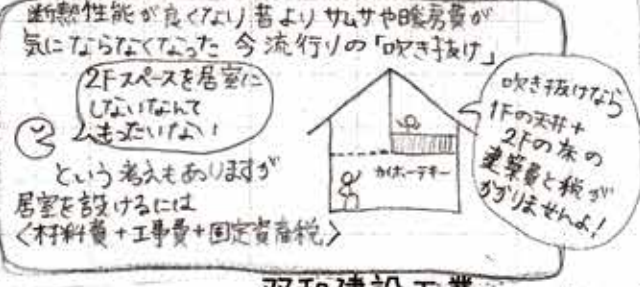 断熱性能が良くなり昔よりサムサや暖房費が
気にならなくなった 今流行りの「吹き抜け」
2Fスペースを居室に
しないなんて
ムもったいない!
という考えもありますが
居室を設けるには
〈材料費+工事費+固定資産税〉
カイホーテキー
吹き抜けなら
1Fの天井+
2Fの床の
建築費と税が
かかりませんよ!